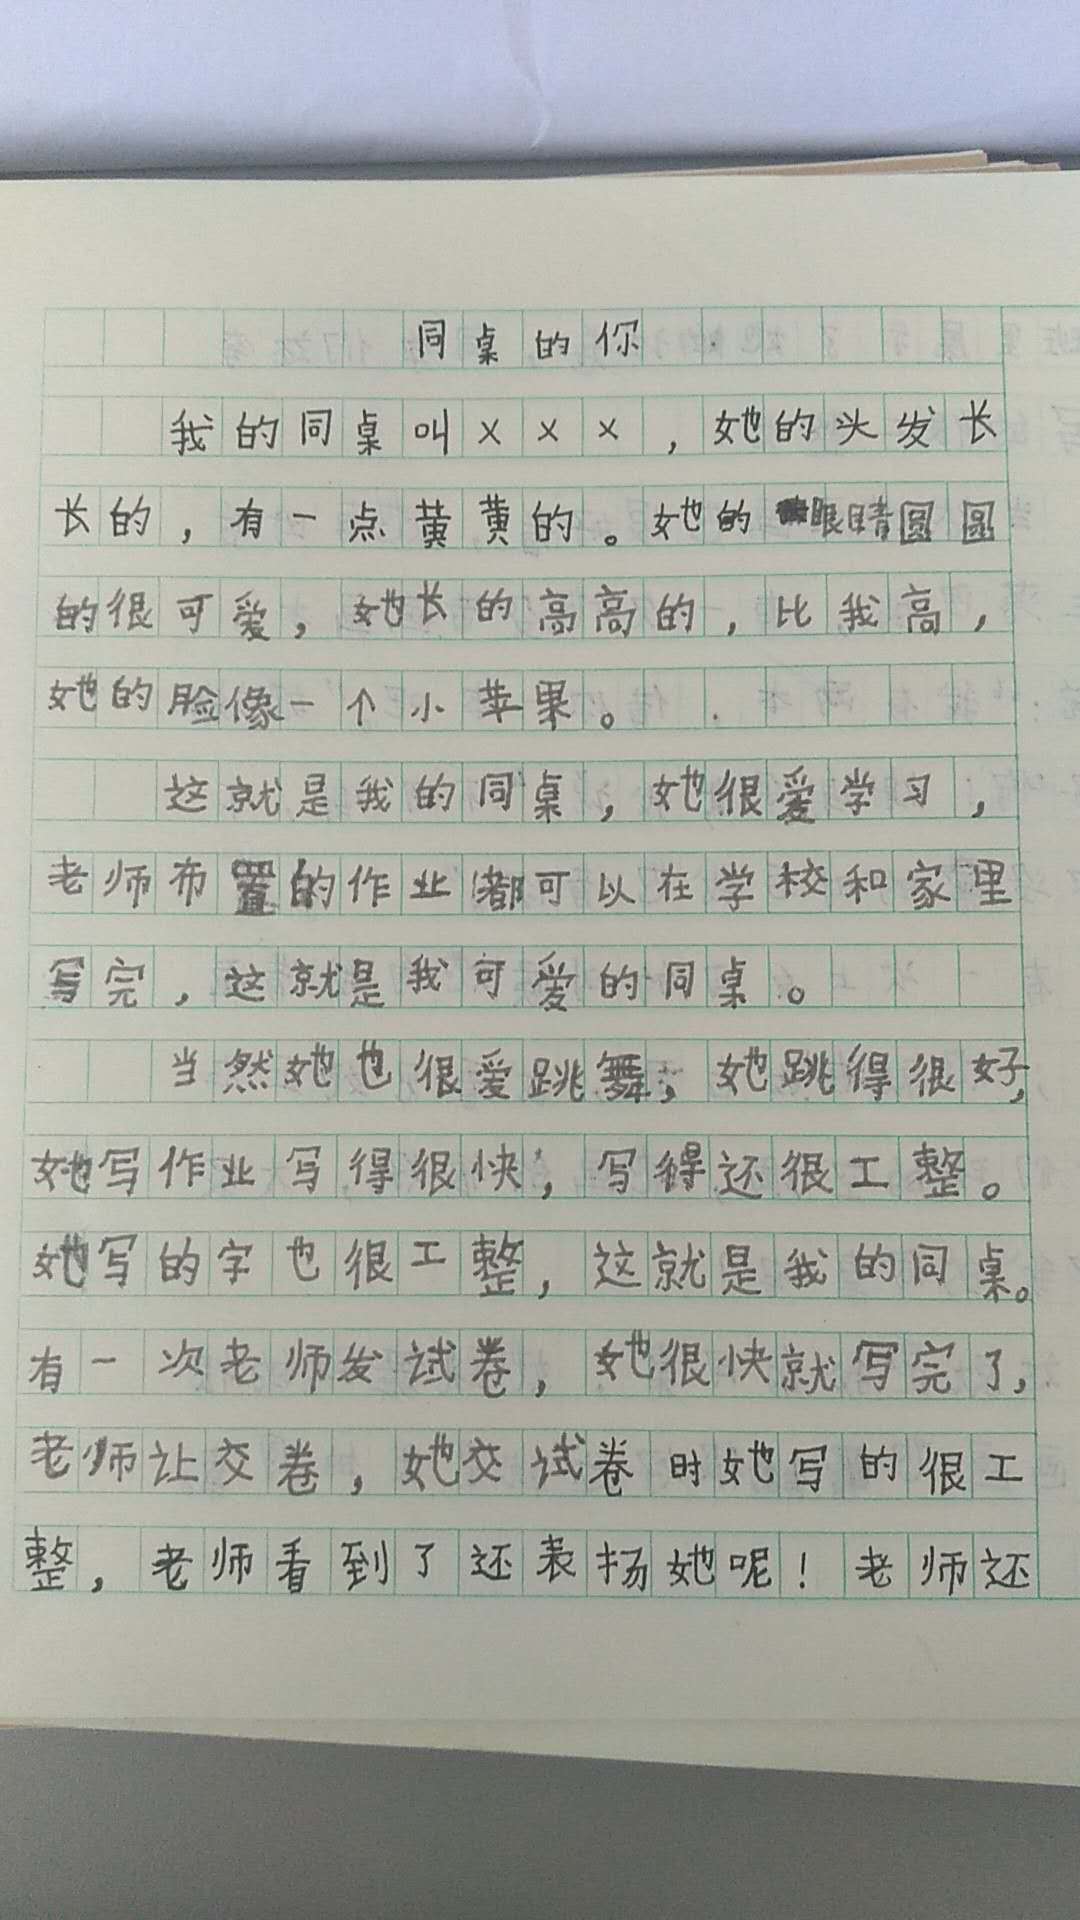 同桌的你
我的同桌叫×××,她的头发长
长的,有一点黄黄的。她的眼睛圆圆
的很可爱,她长的高高的,比我高,
她的脸像一个小苹果。
这就是我的同桌,她很爱学习,
老师布置的作业都可以在学校和家里
写完,这就是我可爱的同桌。
当然她也很爱跳舞,她跳得很好,
她写作业写得很快,写得还很工整。
她写的字也很工整,这就是我的同桌。
有一次老师发试卷,她很快就写完了,
老师让交卷,她交试卷时她写的很工
整,老师看到了还表扬她呢!老师还